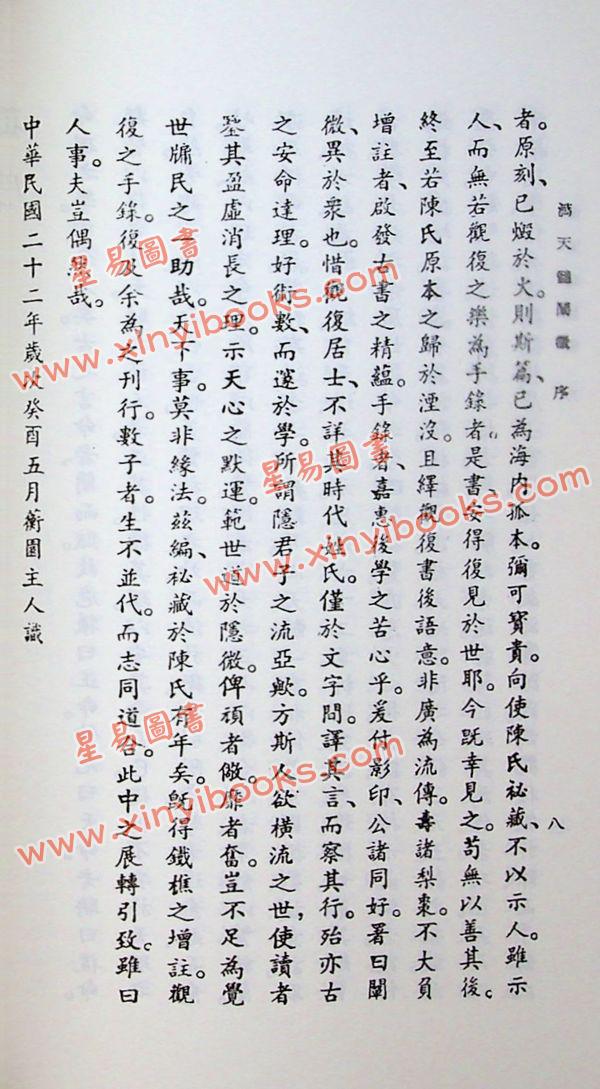 滴天髓闡微　序
八
者。原刻、已燬於火。則斯篇、已為海內孤本。彌可寶貴。向使陳氏祕藏、不以示人。雖示
人、而無若觀復之樂為手錄者。是書安得復見於世耶。今既幸見之。苟無以善其後。
終至若陳氏原本之歸於湮沒。且繹觀復書後語意。非廣為流傳。壽諸梨棗。不大負
增註者、啟發古書之精蘊。手錄者、嘉惠後學之苦心乎。爰付影印、公諸同好。署曰闡
微、異於衆也。惜觀復居士、不詳其時代姓氏。僅於文字間。譯其言、而察其行。殆亦古
之安命達理。好術數、而邃於學。所謂隱君子之流亞歟。方斯人欲橫流之世，使讀者
鑒其盈虛消長之理。示天心之默運。範世道於隱微。俾頑者儆。靡者奮。豈不足為覺
世牖民之一助哉。天下事。莫非緣法。茲編、祕藏於陳氏有年矣。既得鐵樵之增註。觀
復之手錄。復及余為之刊行。數子者。生不並代。而志同道合。此中之展轉引致。雖曰
人事。夫豈偶然哉。
中華民國二十二年歲次癸酉五月衡園主人識
星易圖書
www.xinyibooks.com
星易圖書
www.xinyibooks.com
星易圖書
www.xinyibooks.com